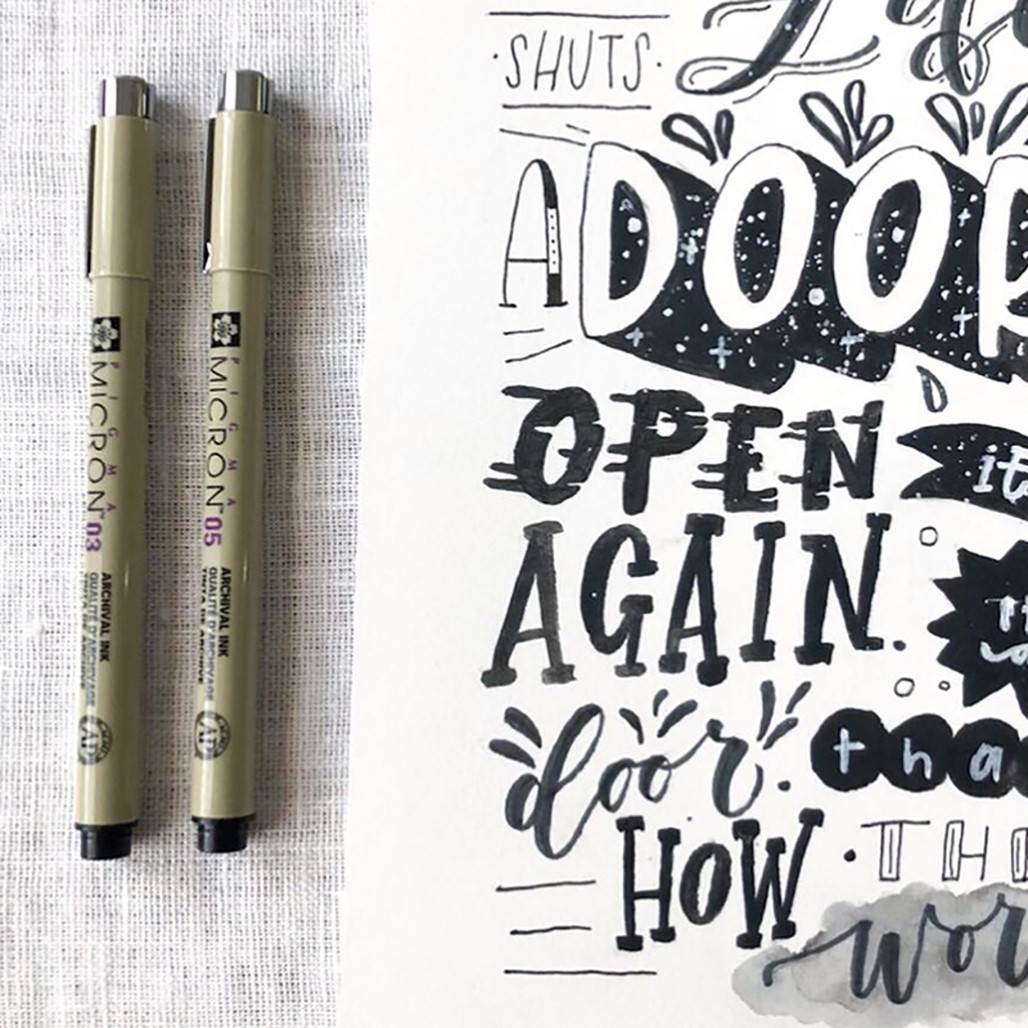 PIGMA
MICRON 03
ARCHIVAL INK
QUALITÉ D'ARCHIVAGE
PIGMA
MICRON 05
ARCHIVAL INK
QUALITÉ D'ARCHIVAGE
AP
SHUTS
A DOOR
OPEN it
AGAIN.
door. tha
HOW THO
wor